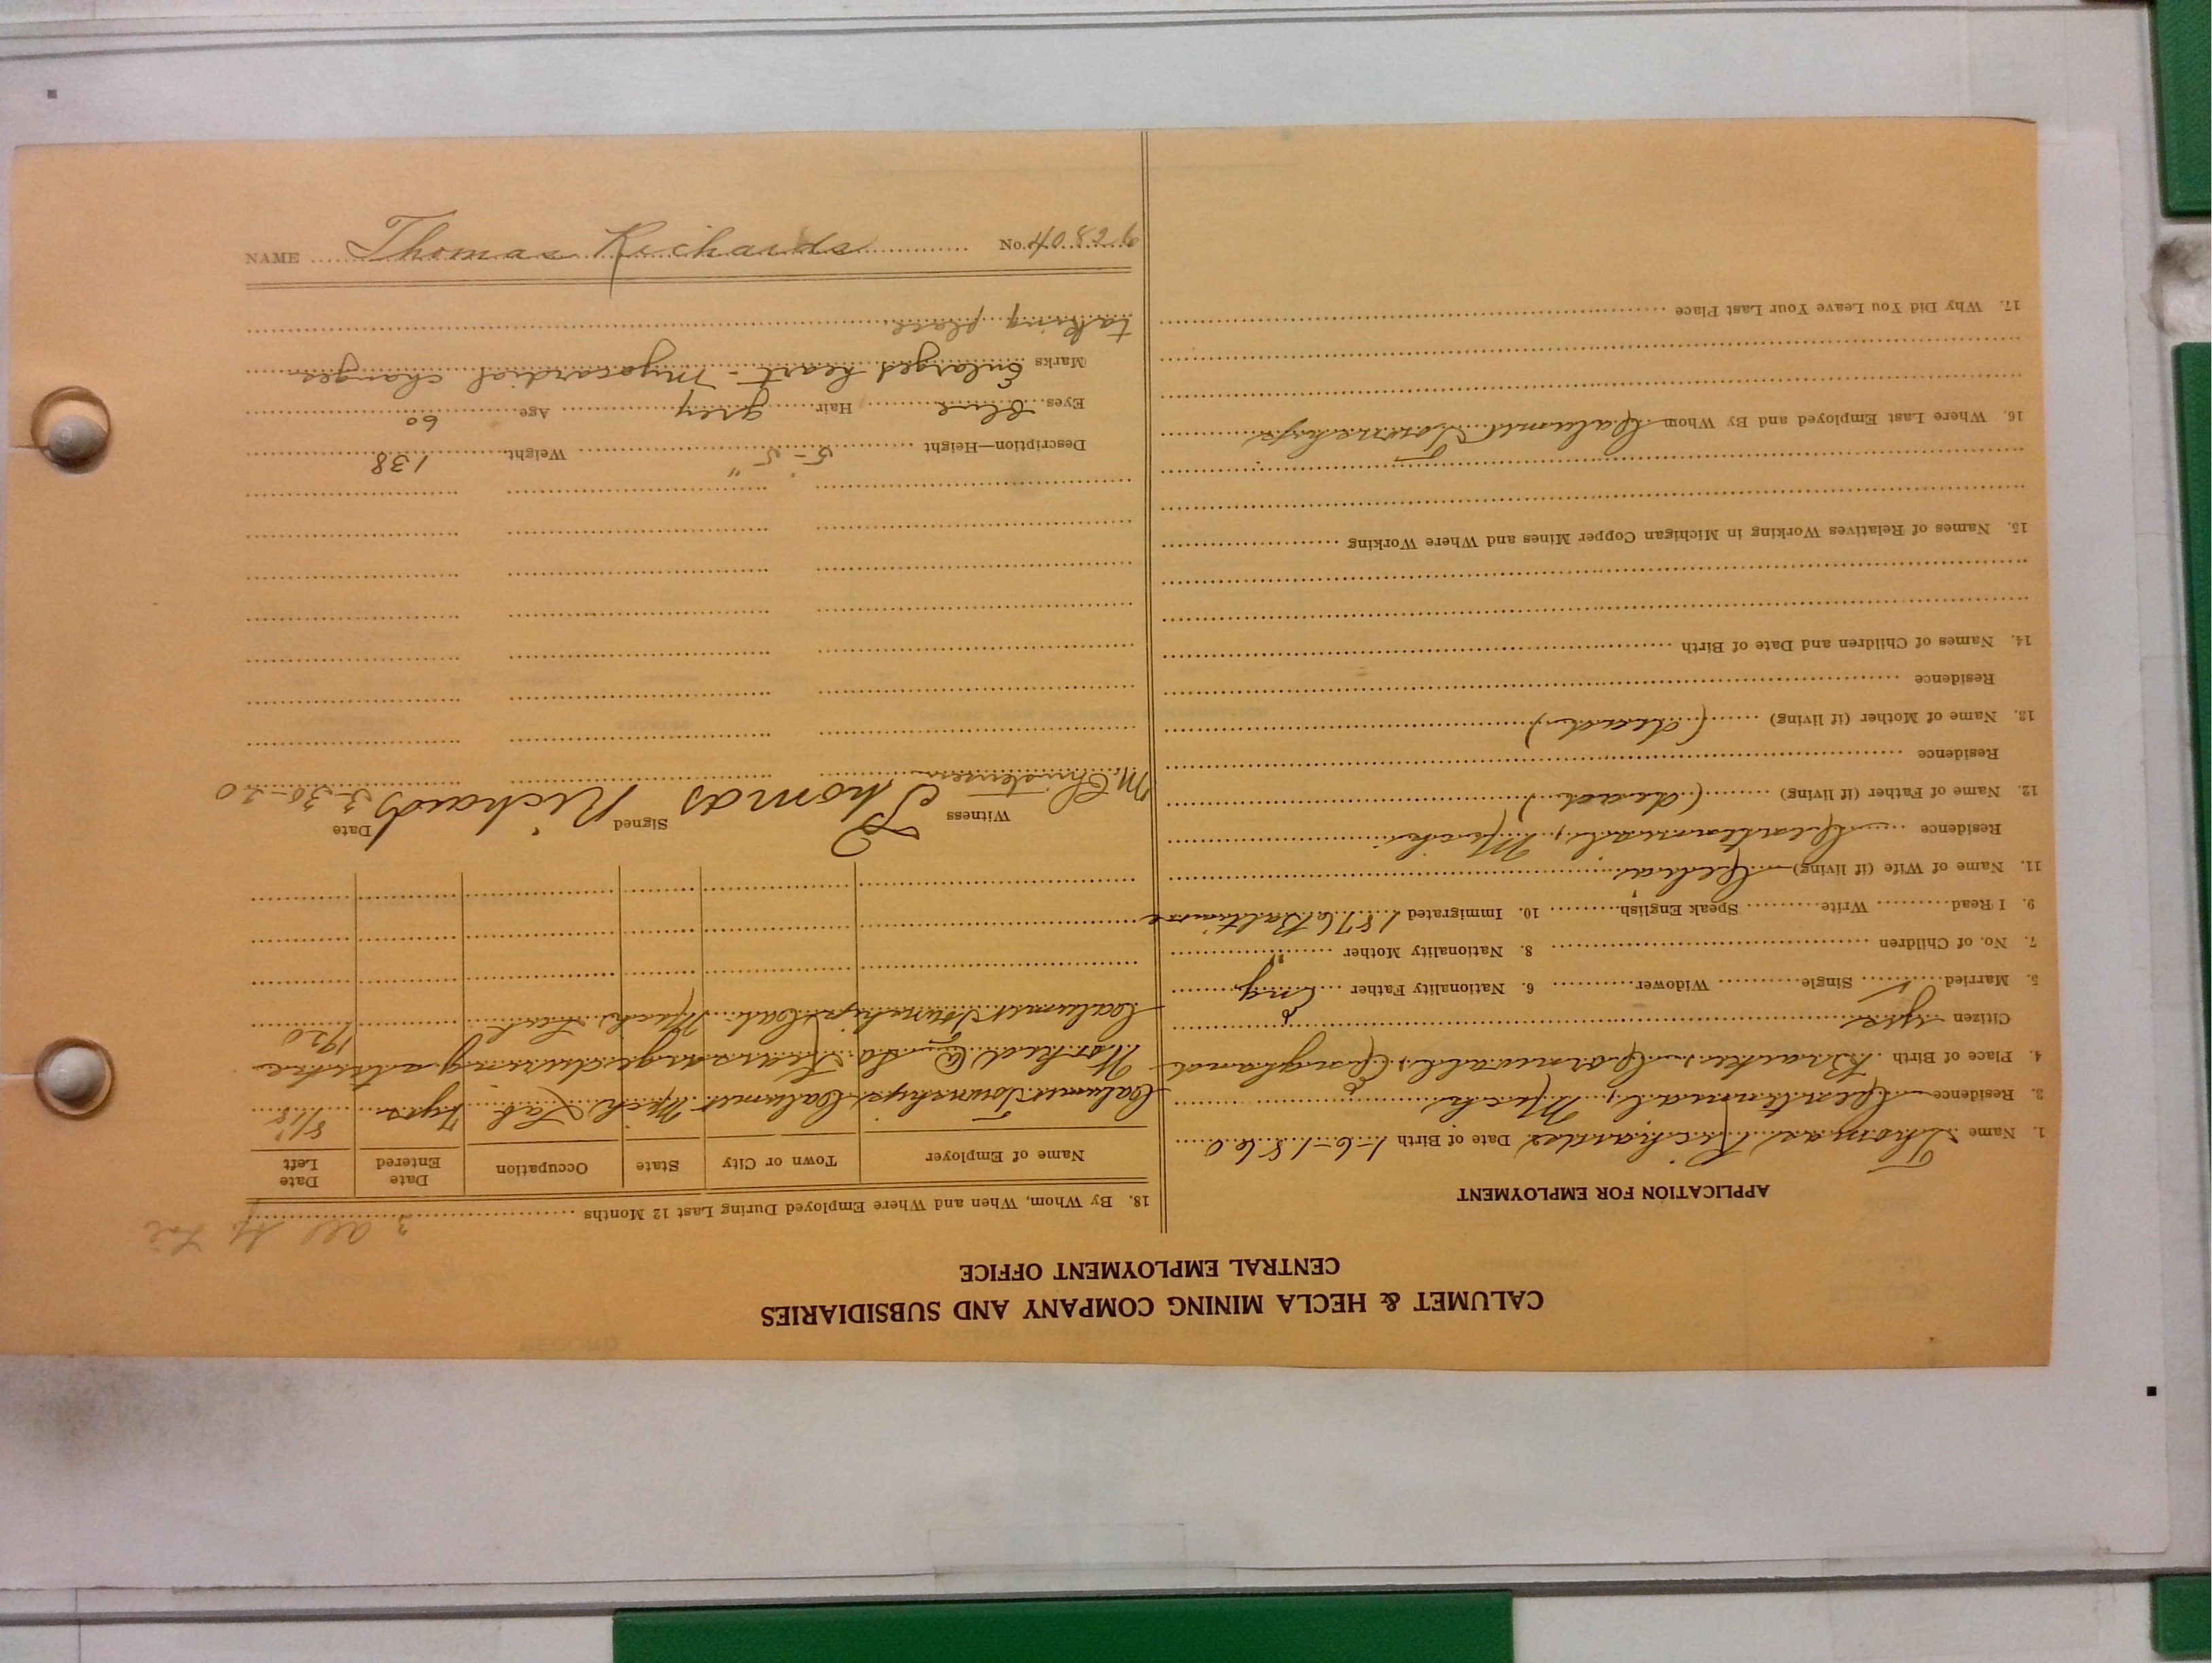 CALUMET & HECLA MINING COMPANY AND SUBSIDIARIES
CENTRAL EMPLOYMENT OFFICE
APPLICATION FOR EMPLOYMENT
1. Name Thomas Richards Date of Birth 1-6-1860
3. Residence Centennial, Mich
4. Place of Birth Cornwall, England
Citizen yes
5. Married ✓ Single Widower 6. Nationality Father Eng
7. No. of Children 8. Nationality Mother "
9. I Read Write Speak English 10. Immigrated 1876 Baltimore
11. Name of Wife (if living)
Residence Centennial, Mich
12. Name of Father (if living) (dead)
Residence
13. Name of Mother (if living) (dead)
Residence
14. Names of Children and Date of Birth
15. Names of Relatives Working in Michigan Copper Mines and Where Working
16. Where Last Employed and By Whom Calumet Township
17. Why Did You Leave Your Last Place
18. By Whom, When and Where Employed During Last 12 Months
Name of Employer Town or City State Occupation Date Entered Date Left
Calumet Township Calumet Mich Lab 7yrs
Worked @ So. Kearsarge during a time
Calumet Township Cal. Mich 1920
Witness Signed Thomas Richards Date 3-30-20
M. Christensen
Description—Height 5-5" Weight 138
Eyes blue Hair grey Age 60
Marks Enlarged heart - Myocardial changes
taking place.
NAME Thomas Richards No. 40826